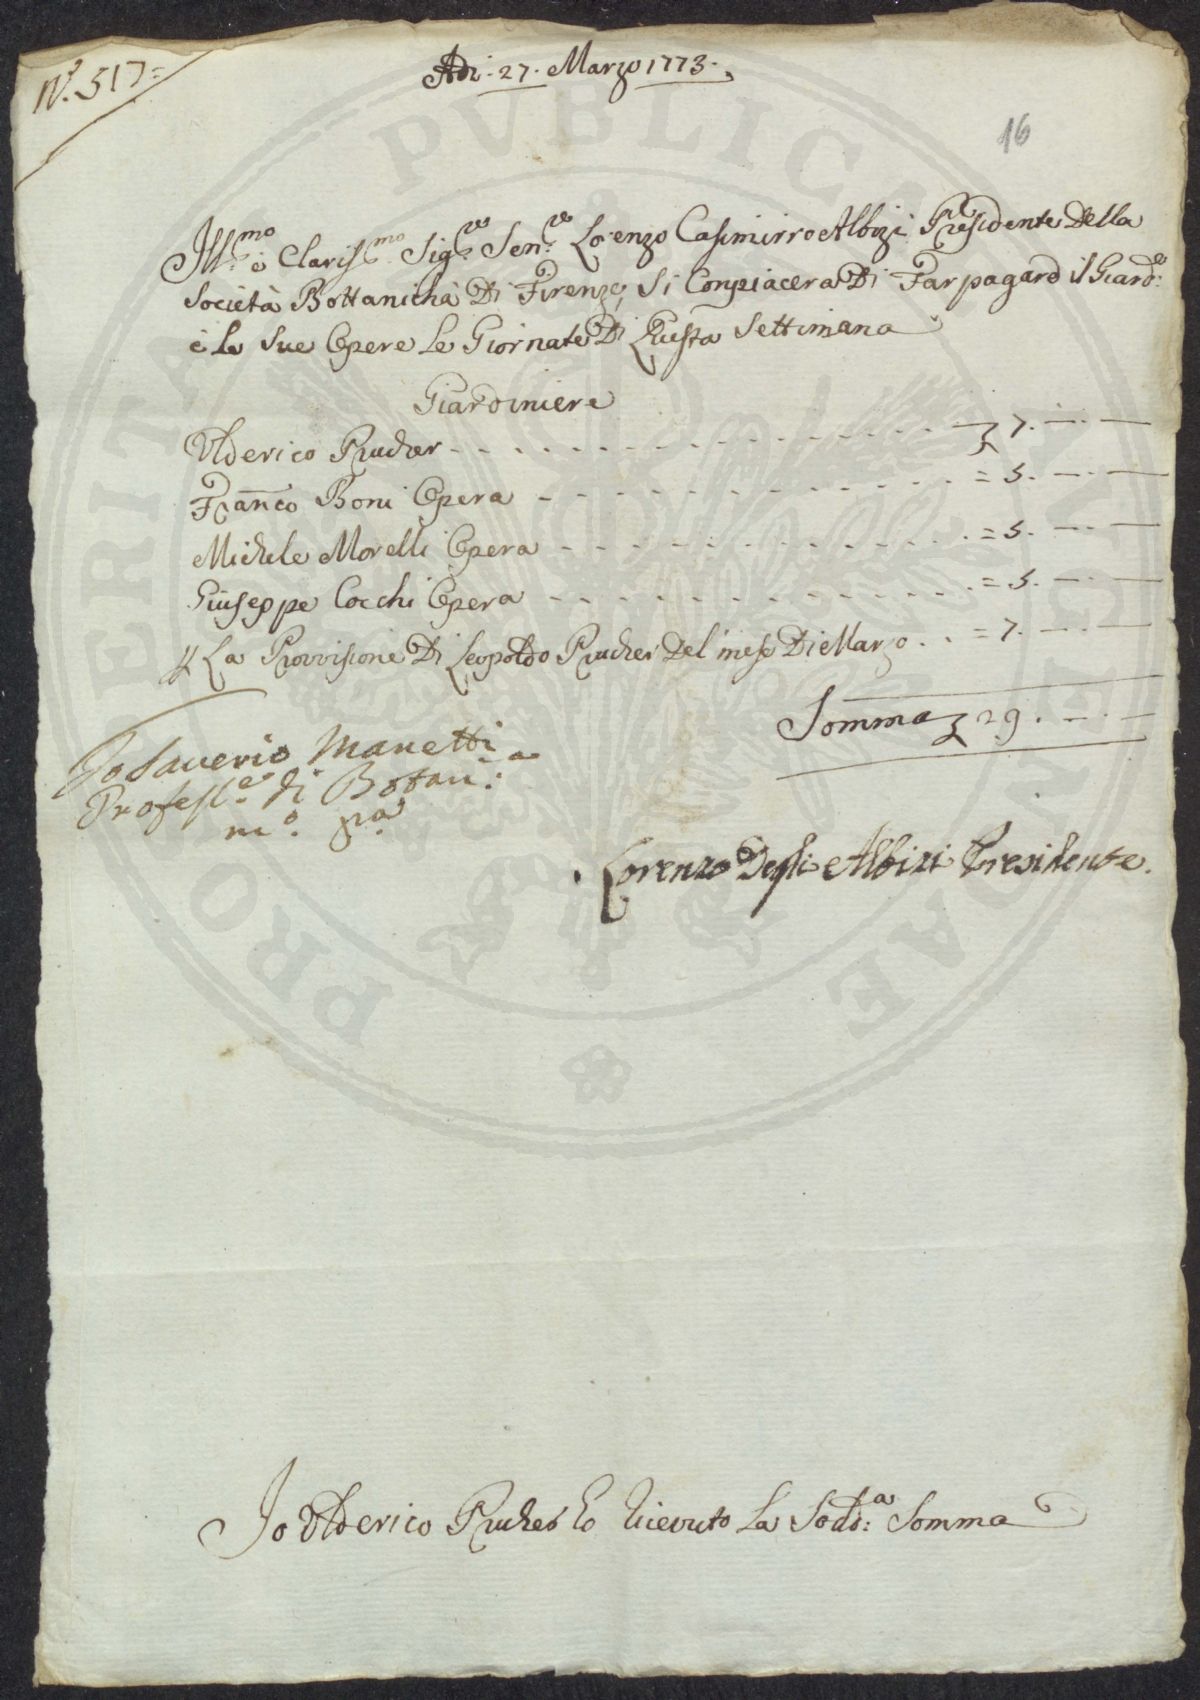 N.º 517=
Adi. 27. Marzo 1773.
16
Ill.mo è Claris.mo Sig.re Sen.re Lorenzo Casimirro Albizi Presidente Della
Società Bottanicha Di Firenze, Si Conpiacera Di Far pagare il Giard.e
è le Sue Opere Le Giornate Di Questa Settimana
Giardiniere
Ulderico Prucher - - - - - - - - - - - - - 7. — —
Fran̅co Boni Opera - - - - - - - - - - - - = 5. — —
Michele Morelli Opera - - - - - - - - - - - = 5. — —
Giuseppe Cocchi Opera - - - - - - - - - - - = 5. — —
La Provvisione Di Leopoldo Prucher Del mese Di Marzo . . = 7. — —
Som̅ma 29. — —
Io Saverio Manetti
Profess.e di Botan.a
m.o p.a
Lorenzo Degli Albizi Presidente.
Io Ulderico Prucher ho Ricevuto La Sodd.a Somma
PROSPERITATI PUBLICAE AUGENDAE